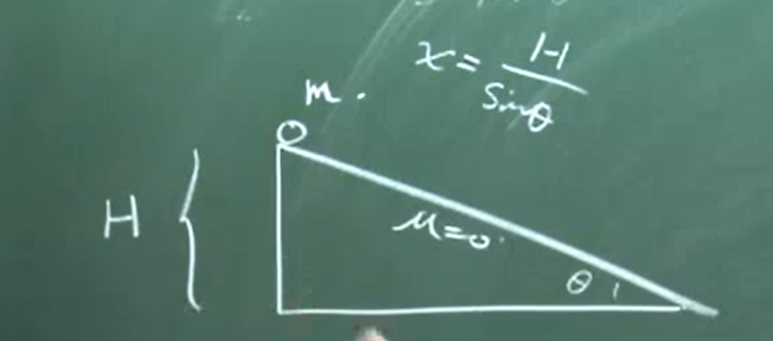 x = H / Sinθ
m.
H
μ=0.
θ